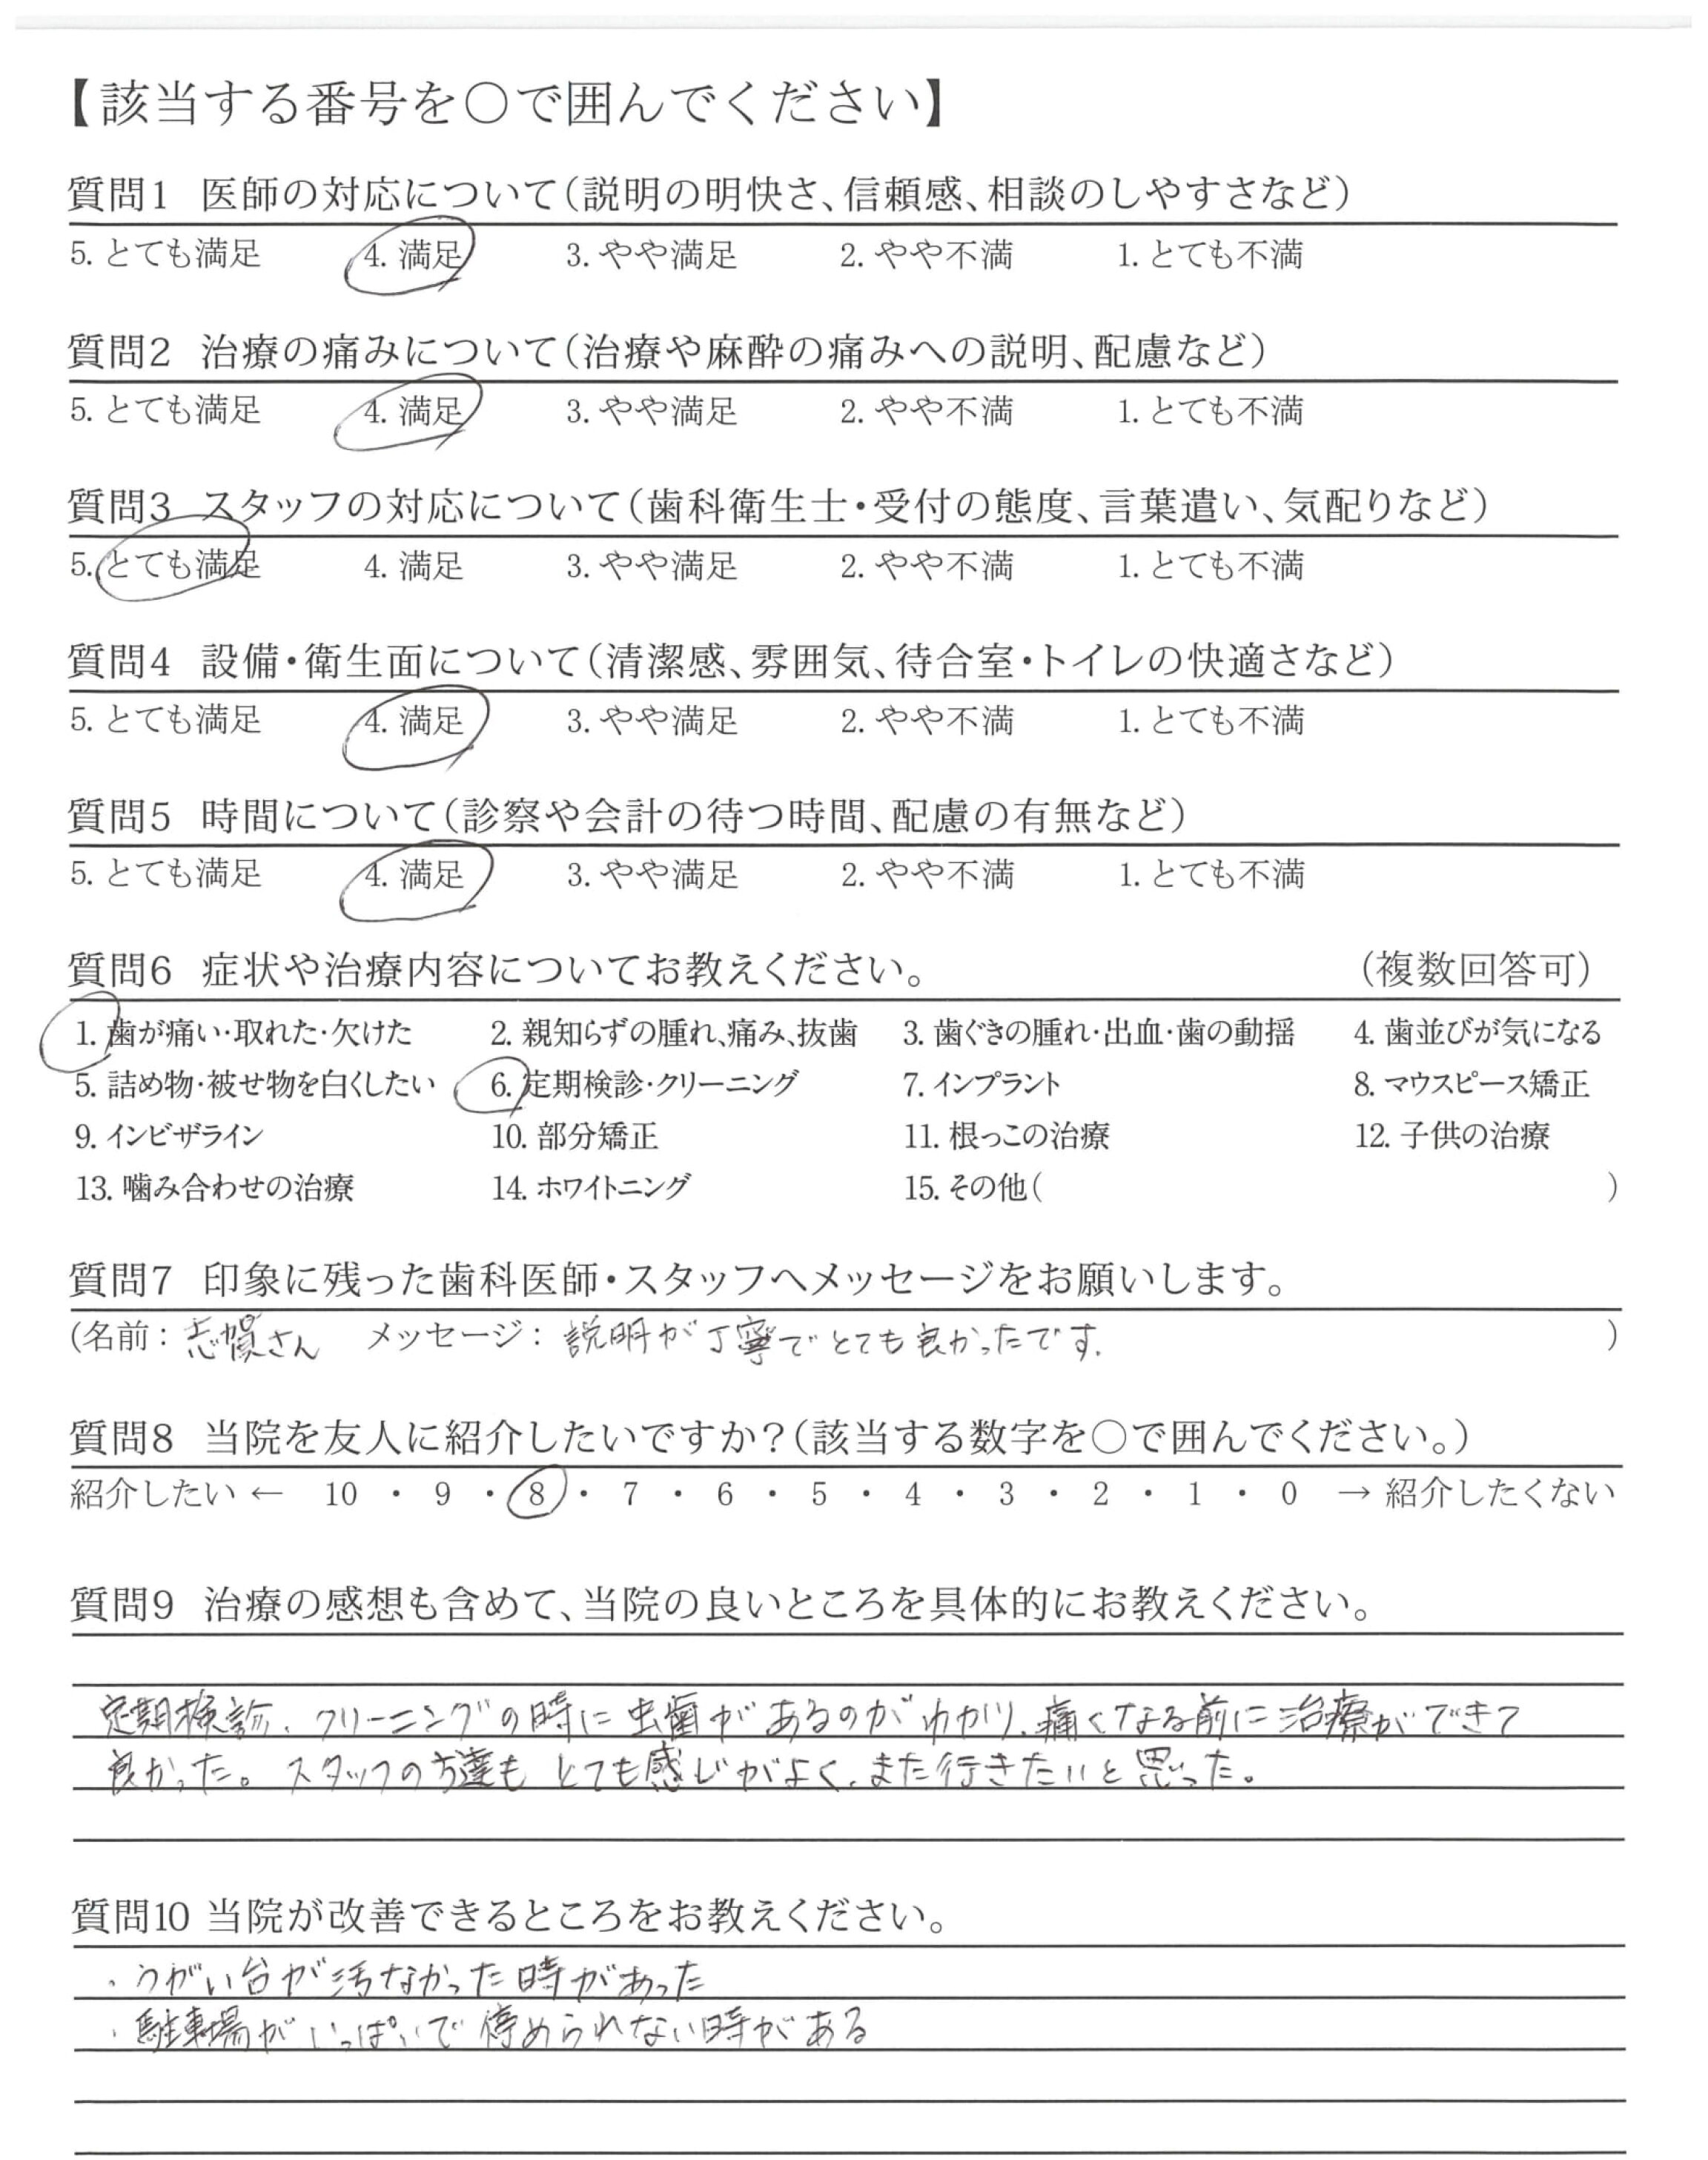 【該当する番号を○で囲んでください】
質問1 医師の対応について(説明の明快さ、信頼感、相談のしやすさなど)
5. とても満足 4. 満足 3. やや満足 2. やや不満 1. とても不満
質問2 治療の痛みについて(治療や麻酔の痛みへの説明、配慮など)
5. とても満足 4. 満足 3. やや満足 2. やや不満 1. とても不満
質問3 スタッフの対応について(歯科衛生士・受付の態度、言葉遣い、気配りなど)
5. とても満足 4. 満足 3. やや満足 2. やや不満 1. とても不満
質問4 設備・衛生面について(清潔感、雰囲気、待合室・トイレの快適さなど)
5. とても満足 4. 満足 3. やや満足 2. やや不満 1. とても不満
質問5 時間について(診察や会計の待つ時間、配慮の有無など)
5. とても満足 4. 満足 3. やや満足 2. やや不満 1. とても不満
質問6 症状や治療内容についてお教えください。 (複数回答可)
1. 歯が痛い・取れた・欠けた 2. 親知らずの腫れ、痛み、抜歯 3. 歯ぐきの腫れ・出血・歯の動揺 4. 歯並びが気になる
5. 詰め物・被せ物を白くしたい 6. 定期検診・クリーニング 7. インプラント 8. マウスピース矯正
9. インビザライン 10. 部分矯正 11. 根っこの治療 12. 子供の治療
13. 噛み合わせの治療 14. ホワイトニング 15. その他( )
質問7 印象に残った歯科医師・スタッフへメッセージをお願いします。
(名前: 志賀さん メッセージ: 説明が丁寧でとても良かったです. )
質問8 当院を友人に紹介したいですか?(該当する数字を○で囲んでください。)
紹介したい ← 10 ・ 9 ・ 8 ・ 7 ・ 6 ・ 5 ・ 4 ・ 3 ・ 2 ・ 1 ・ 0 → 紹介したくない
質問9 治療の感想も含めて、当院の良いところを具体的にお教えください。
定期検診、クリーニングの時に虫歯があるのがわかり、痛くなる前に治療ができて
良かった。スタッフの方達もとても感じがよく、また行きたいと思った。
質問10 当院が改善できるところをお教えください。
・うがい台が汚なかった時があった
・駐車場がいっぱいで停められない時がある